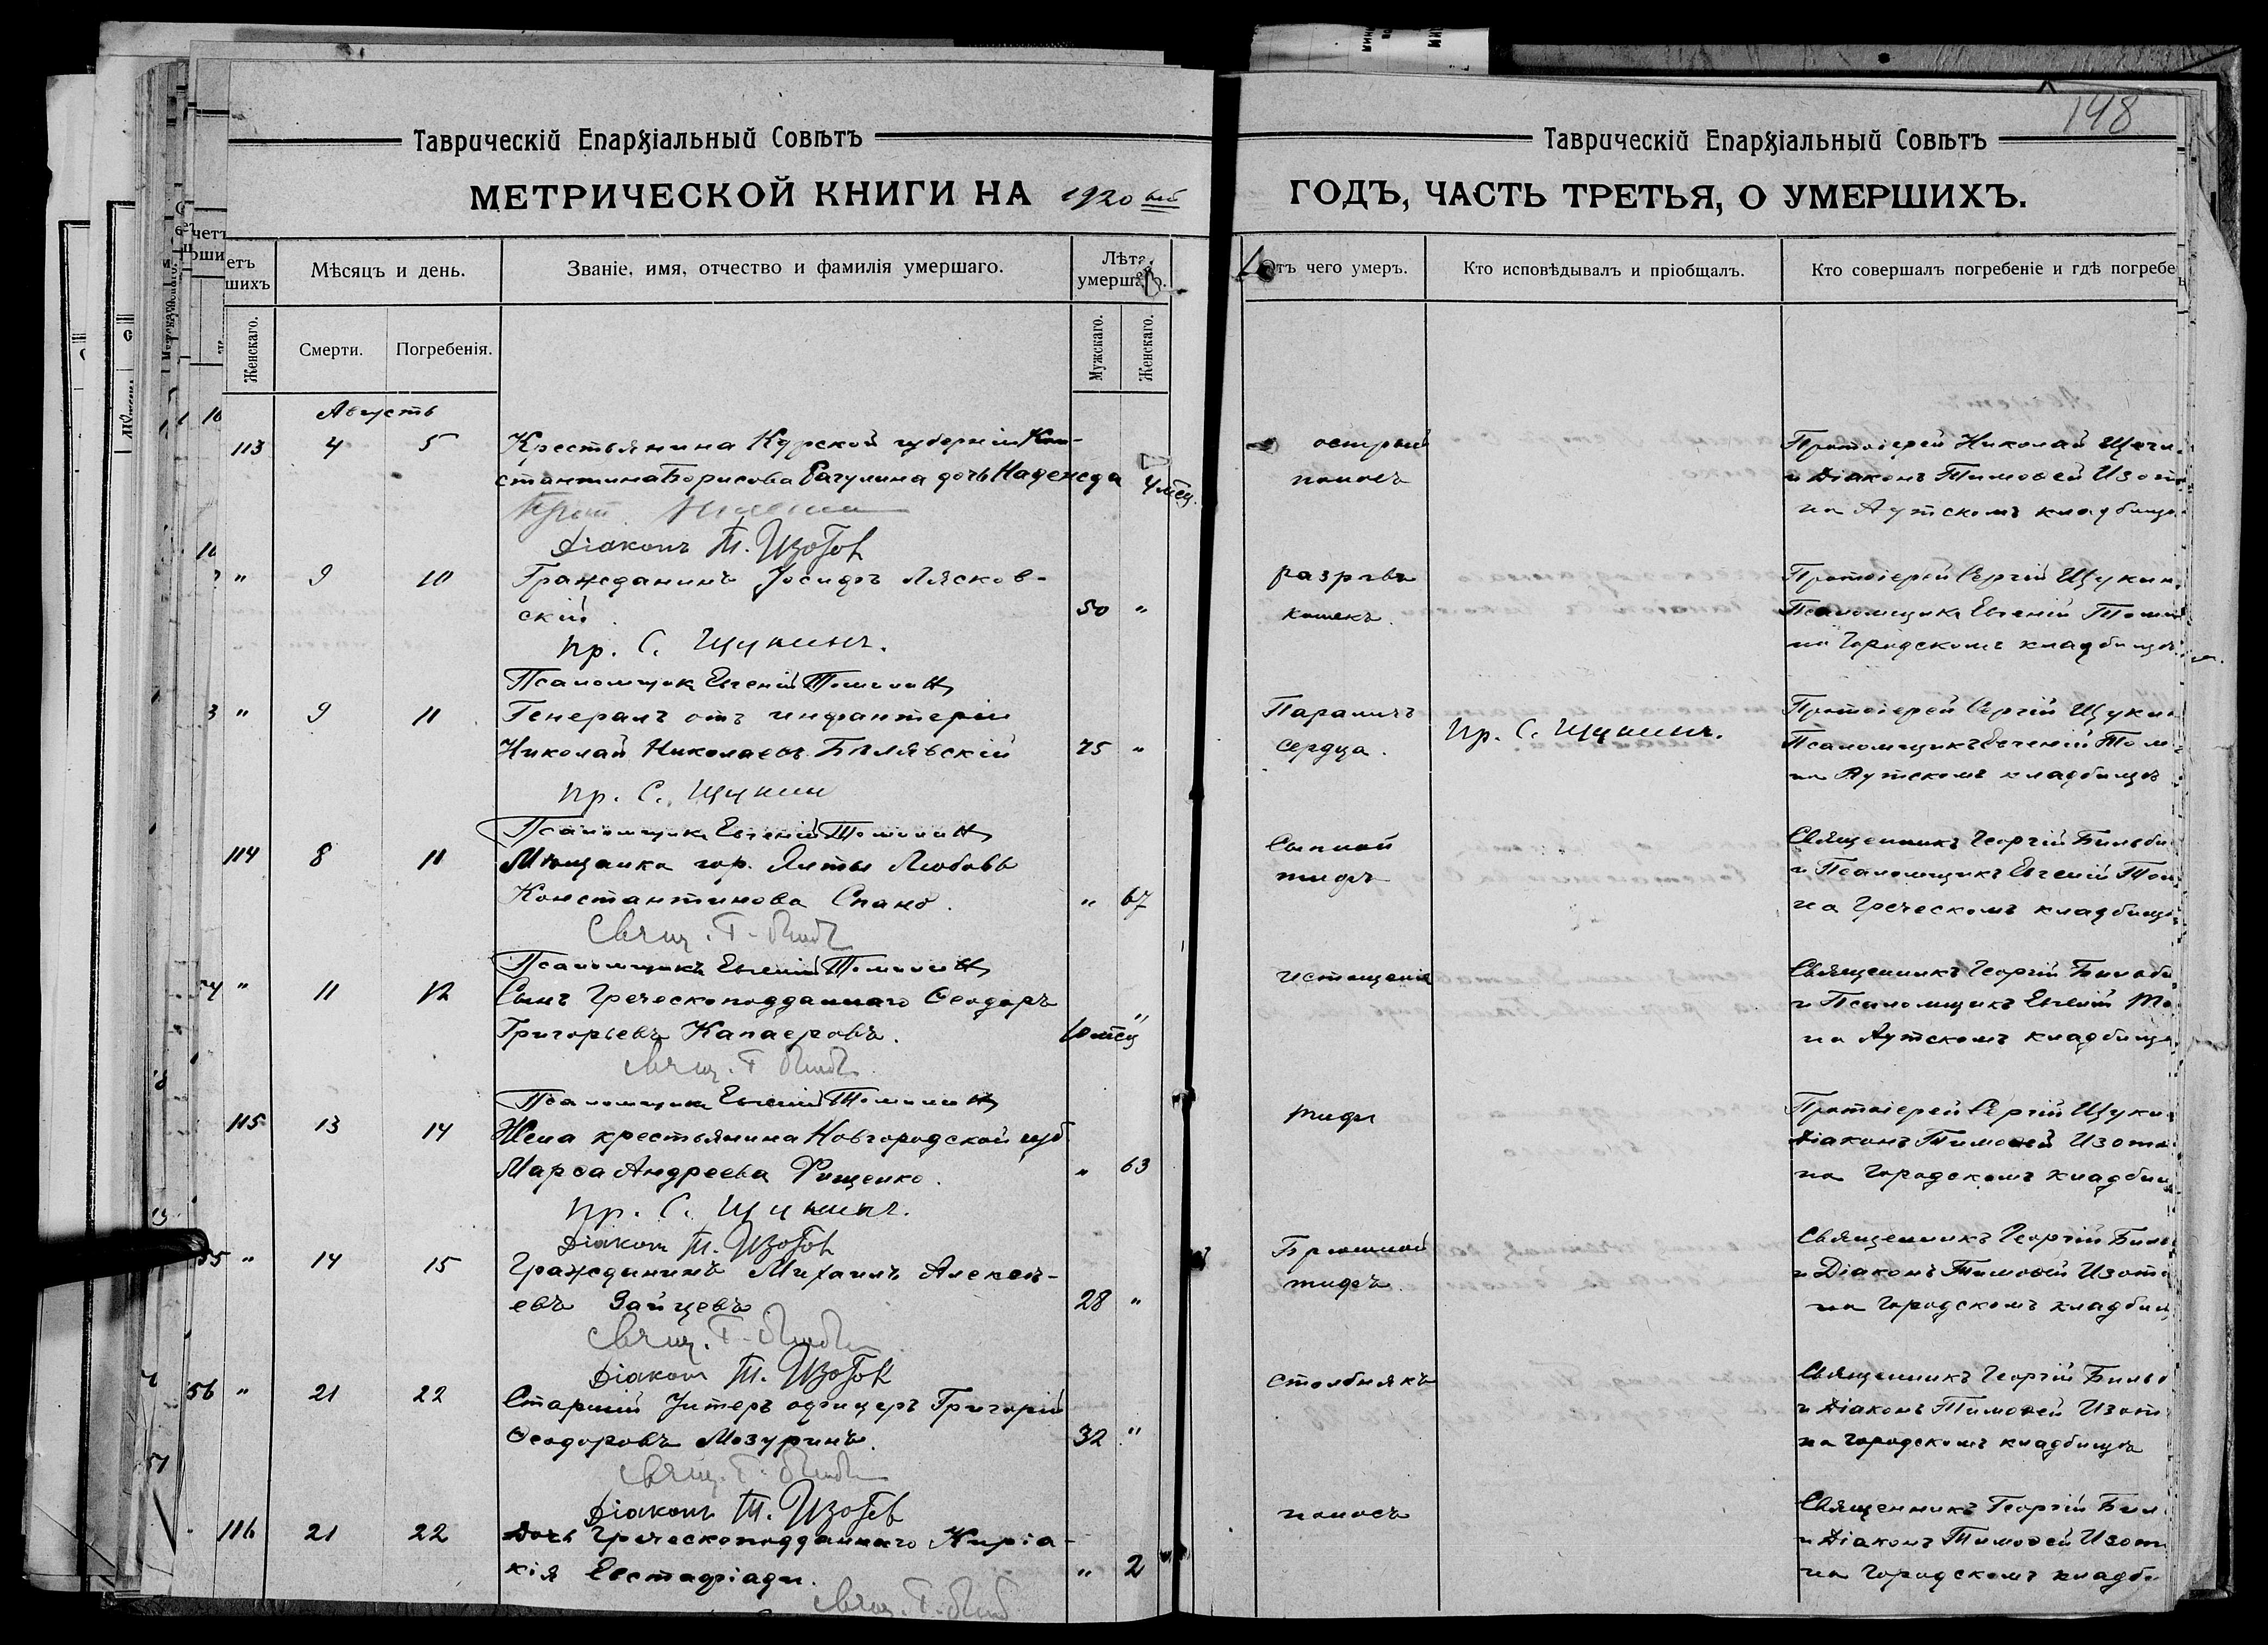 148
Таврическій Епархіальный Совѣтъ
Таврическій Епархіальный Совѣтъ
МЕТРИЧЕСКОЙ КНИГИ НА 1920 ый
ГОДЪ, ЧАСТЬ ТРЕТЬЯ, О УМЕРШИХЪ.
етъ
шихъ
Женскаго.
Мѣсяцъ и день.
Смерти.
Погребенія.
Званіе, имя, отчество и фамилія умершаго.
Лѣта
умершаго.
Мужскаго.
Женскаго.
Отъ чего умеръ.
Кто исповѣдывалъ и пріобщалъ.
Кто совершалъ погребеніе и гдѣ погребе
Августъ
113 4 5 Крестьянина Курской губерніи Кон-
стантина Борисова Рагулина дочь Надежда 4 мѣс.
Діаконъ Т. Изотов
острый
поносъ
Протоіерей Николай Щеги
и Діаконъ Тимоѳей Изот
на Аутскомъ кладбищѣ
" 9 10 Гражданинъ Іосифъ Лясков-
скій. 50 "
Пр. С. Щукинъ.
Псаломщикъ Евгеній Томилин
разрывъ
кишекъ.
Протоіерей Сергій Щукин
Псаломщикъ Евгеній Томи
на Городскомъ кладбищѣ
3 " 9 11 Генералъ отъ инфантеріи
Николай Николаевъ Бѣлявскій 75 "
Пр. С. Щукин
Псаломщикъ Евгеній Томилин
Параличъ
сердца.
Пр. С. Щукинъ.
Протоіерей Сергій Щукин
Псаломщикъ Евгеній Том
на Аутскомъ кладбищѣ
114 8 11 Мѣщанка гор. Ялты Любовь
Константинова Спано. " 67
Свящ. Г.
Псаломщикъ Евгеній Томилин
Сыпной
тифъ
Священникъ Георгій Бильби
и Псаломщикъ Евгеній Том
на Греческомъ кладбищѣ
54 " 11 12 Сынъ Греческоподданнаго Ѳеодоръ
Григорьевъ Капаеровъ. 10 мѣс "
Свящ. Г.
Псаломщикъ Евгеній Томилин
истощенія
Священникъ Георгій Бильби
и Псаломщикъ Евгеній То
на Аутскомъ кладбищѣ
115 13 14 Жена крестьянина Новгородской губ
Марѳа Андреева Рищенко. " 63
Пр. С. Щукинъ.
Діаконъ Т. Изотов
тифъ
Протоіерей Сергій Щуки
Діаконъ Тимоѳей Изото
на Городскомъ кладбищ
55 " 14 15 Гражданинъ Михаилъ Алексѣ-
евъ Зайцевъ. 28 "
Свящ. Г.
Діаконъ Т. Изотов
Брюшной
тифъ.
Священникъ Георгій Биль
и Діаконъ Тимоѳей Изото
на Городскомъ кладбищ
56 " 21 22 Старшій Унтеръ офицеръ Григорій
Ѳеодоровъ Мозуринъ. 32 "
Свящ. Г.
Діаконъ Т. Изотов
столбнякъ
Священникъ Георгій Бильб
и Діаконъ Тимоѳей Изот
на городскомъ кладбищѣ
116 21 22 Дочь Греческоподданнаго Киріа-
кія Евстафіади. " 2
Свящ. Г.
поносъ
Священникъ Георгій Бил
и Діаконъ Тимоѳей Изот
на Городскомъ кладби